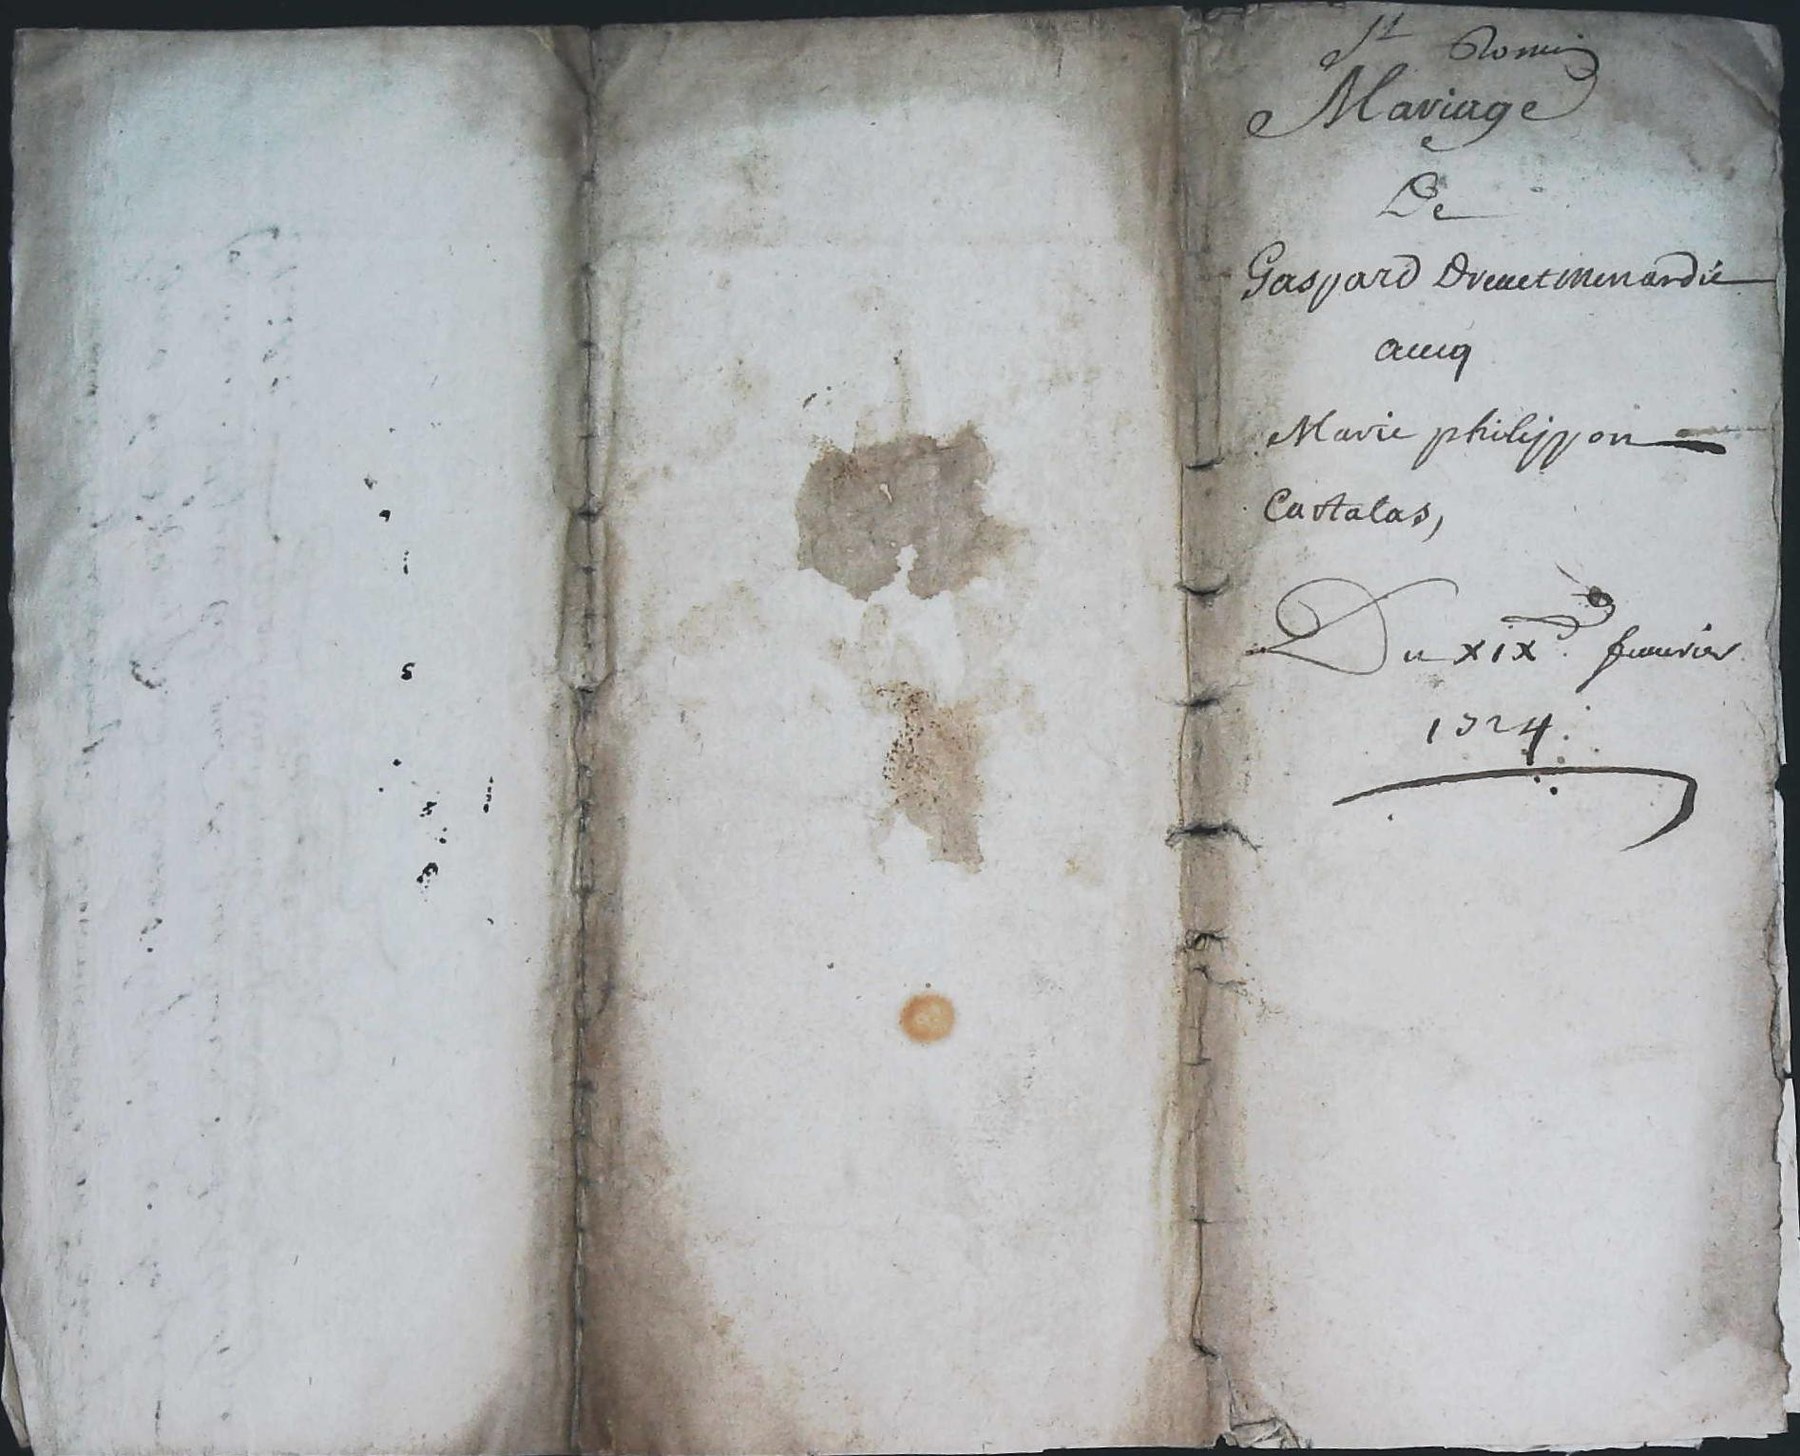 St Romin
Mariage
De
Gaspard Drevet menardié
aueq
Marie philippon
Castalas,
Du xix.e feuurier
1724.